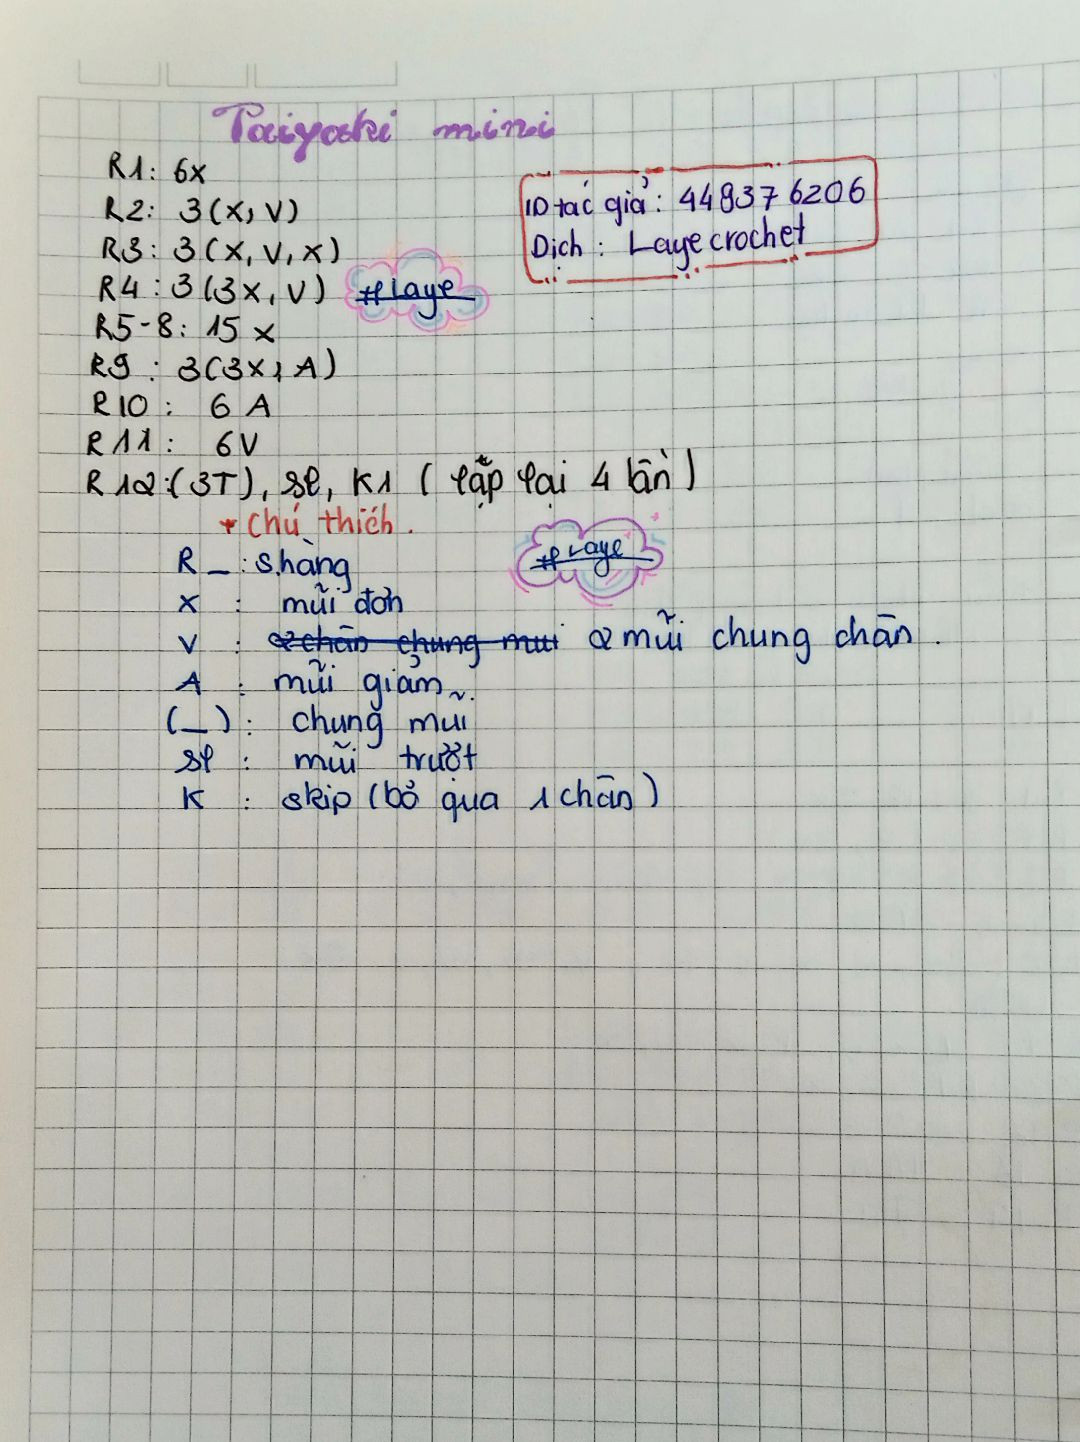 Taiyaki mini
R1: 6x
R2: 3(x, v)
R3: 3(x, v, x)
R4: 3(3x, v)
#Laye
ID tác giả: 449376206
Dịch: Layecrochet
R5-8: 15 x
R9: 3(3x, A)
R10: 6 A
R11: 6V
R12:(3T), sl, K1 (lặp lại 4 lần)
* Chú thích.
#Laye
R_: s.hàng
x: mũi đơn
v: 2 chân chung mũi 2 mũi chung chân.
A: mũi giảm
(_): chung mũi
sl: mũi trượt
K: skip (bỏ qua 1 chân)